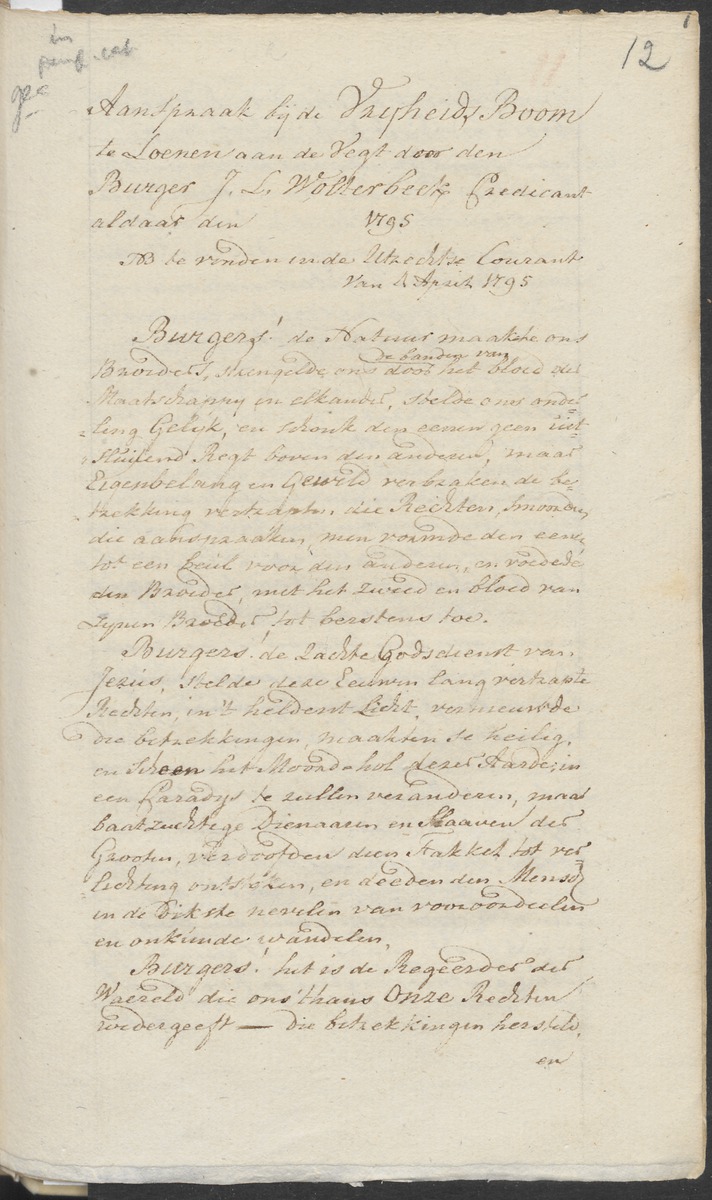 12
Aanspraak bij de Vryheids Boom
te Loenen aan de Vegt door den
Burger J. L. Wolterbeek Predicant
aldaar den 1795
NB te vinden in de Utrechtse Courant
van 4 April 1795
Burgers! de Natuur maakte ons
de banden van
Broeders, mengelde ons door het bloed der
Maatschappy in elkander, stelde ons onder¬
ling Gelyk, en schonk den eenen geen uit¬
sluijend Regt boven den anderen, maar
Eigenbelang en Geweld verbraken de be¬
trekking vertrapten die Rechten, smoorden
die aanspraaken, men vormde den eenen
tot een beul voor den anderen, en voedede
den Broeder, met het zweed en bloed van
Zynen Broeder, tot berstens toe.
Burgers! de Zachte Godsdienst van
Jezus, stelde deze Eeuwen lang vertrapte
Rechten, in 't helderst Licht, vernieuwde
die betrekkingen, maakten se heilig,
en scheen het Moord-hol dezer Aarde, in
een Paradys te zullen veranderen, maar
baatzuchtige Dienaaren en Slaaven der
Grooten, verdoofden dien Fakkel tot ver¬
lichting ontstoken, en deeden den Mensch
in de Dikste nevelen van vooroordeelen
en onkunde wandelen,
Burgers! het is de Regeerder der
Waereld die ons thans Onze Rechten
wedergeeft — die betrekkingen hersteld,
en